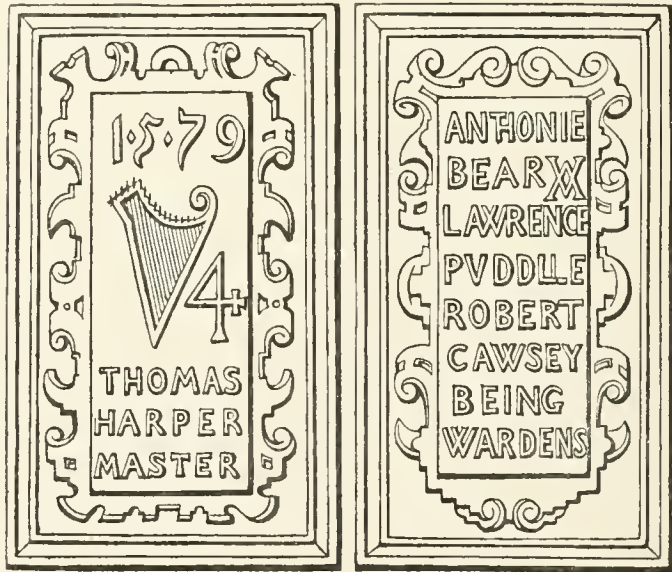 1·5·79
4
THOMAS
HARPER
MASTER
ANTHONIE
BEAR
LAWRENCE
PVDDLLE
ROBERT
CAWSEY
BEING
WARDENS